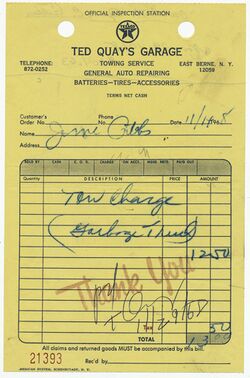 OFFICIAL INSPECTION STATION
TEXACO
TED QUAY'S GARAGE
TOWING SERVICE
TELEPHONE:
872-0252
EAST BERNE, N. Y.
12059
GENERAL AUTO REPAIRING
BATTERIES—TIRES—ACCESSORIES
TERMS NET CASH
Customer's
Order No.
Phone
No.
Date 11/
Name
Address
SOLD BY CASH C. O. D. CHARGE ON ACCT. MDSE. RETD. PAID OUT
QUAN. DESCRIPTION PRICE AMOUNT
Tow Charge
(Garbage Truck)
12 50
Thank You
Tax
50
TOTAL 13 00
21393
All claims and returned goods MUST be accompanied by this bill.
Rec'd by